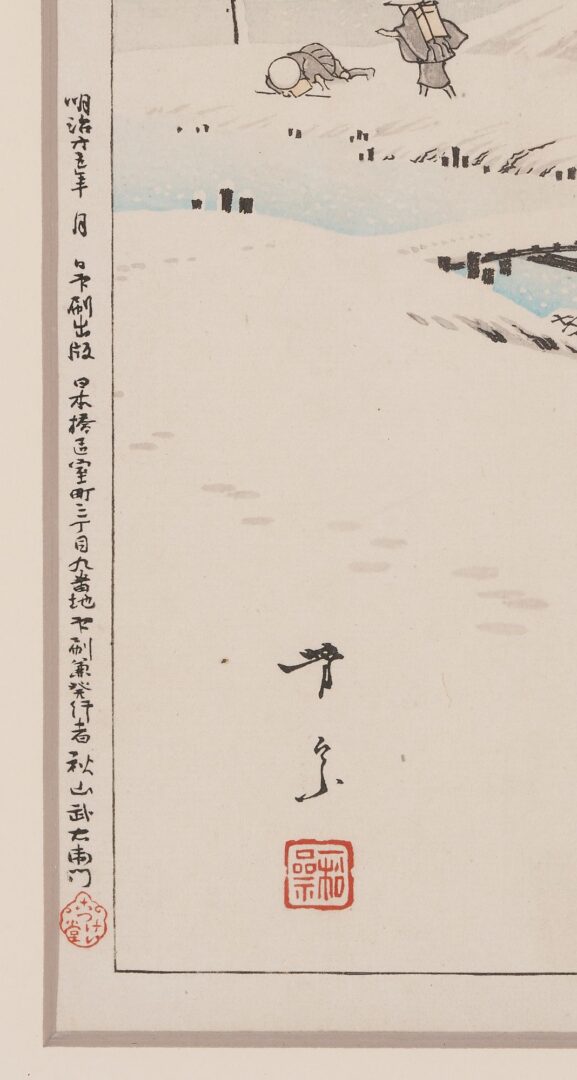 明治廿五年　月　日印刷出版　日本橋区室町三丁目九番地印刷兼発行者　秋山武右衛門
芳宗
こつけい堂
一松齋